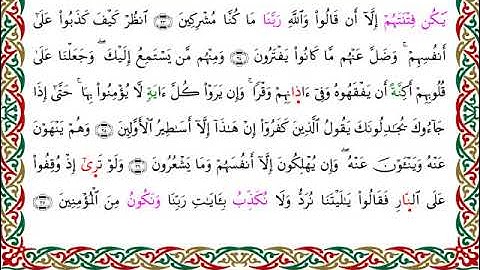 يَكُن فِتْنَتَهُمْ إِلَّآ أَن قَالُوا۟ وَٱللَّهِ رَبَّنَا مَا كُنَّا مُشْرِكِينَ ٱنظُرْ كَيْفَ كَذَبُوا۟ عَلَىٰٓ
أَنفُسِهِمْ ۚ وَضَلَّ عَنْهُم مَّا كَانُوا۟ يَفْتَرُونَ وَمِنْهُم مَّن يَسْتَمِعُ إِلَيْكَ ۖ وَجَعَلْنَا عَلَىٰ
قُلُوبِهِمْ أَكِنَّةً أَن يَفْقَهُوهُ وَفِىٓ ءَاذَانِهِمْ وَقْرًا ۚ وَإِن يَرَوْا۟ كُلَّ ءَايَةٍ لَّا يُؤْمِنُوا۟ بِهَا ۚ حَتَّىٰٓ إِذَا
جَآءُوكَ يُجَـٰدِلُونَكَ يَقُولُ ٱلَّذِينَ كَفَرُوٓا۟ إِنْ هَـٰذَآ إِلَّآ أَسَـٰطِيرُ ٱلْأَوَّلِينَ وَهُمْ يَنْهَوْنَ
عَنْهُ وَيَنْـَٔوْنَ عَنْهُ ۖ وَإِن يُهْلِكُونَ إِلَّآ أَنفُسَهُمْ وَمَا يَشْعُرُونَ وَلَوْ تَرَىٰٓ إِذْ وُقِفُوا۟
عَلَى ٱلنَّارِ فَقَالُوا۟ يَـٰلَيْتَنَا نُرَدُّ وَلَا نُكَذِّبُ بِـَٔايَـٰتِ رَبِّنَا وَنَكُونُ مِنَ ٱلْمُؤْمِنِينَ